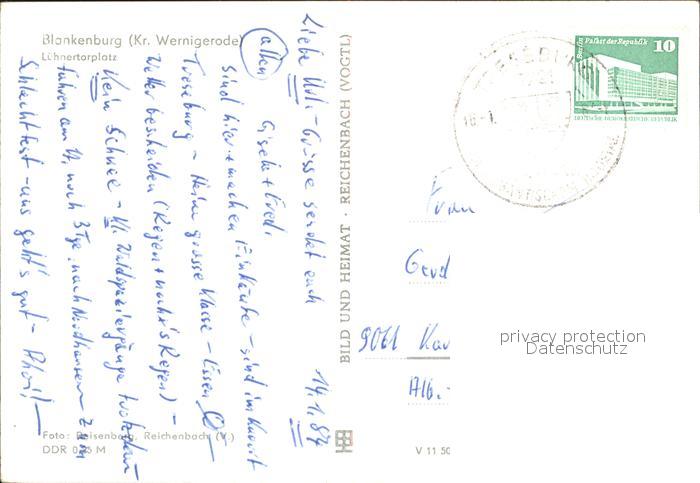 Blankenburg (Kr. Wernigerode)
Lühnertorplatz
Liebe Urlaubs-Grüsse sendet euch
allen
14.1.87
Gisela + Fredi.
Sind hier + machen Einkäufe - sind im Kurort
Treseburg - Heim grosse Klasse - Essen
Wetter bescheiden (Regen + nochm's Regen) -
Kein Schnee - Kl. Waldspaziergänge trotzdem
fahren am 17. noch 3 Tge. nach Nordhausen zum
Schlachtfest - uns geht's gut -
Foto: Beisenberg, Reichenbach (V.)
DDR M
BILD UND HEIMAT · REICHENBACH (VOGTL)
V 11 50
Berlin Palast der Republik 10
DEUTSCHE DEMOKRATISCHE REPUBLIK
Frau
Gerd
9061
Alb.-
privacy protection
Datenschutz